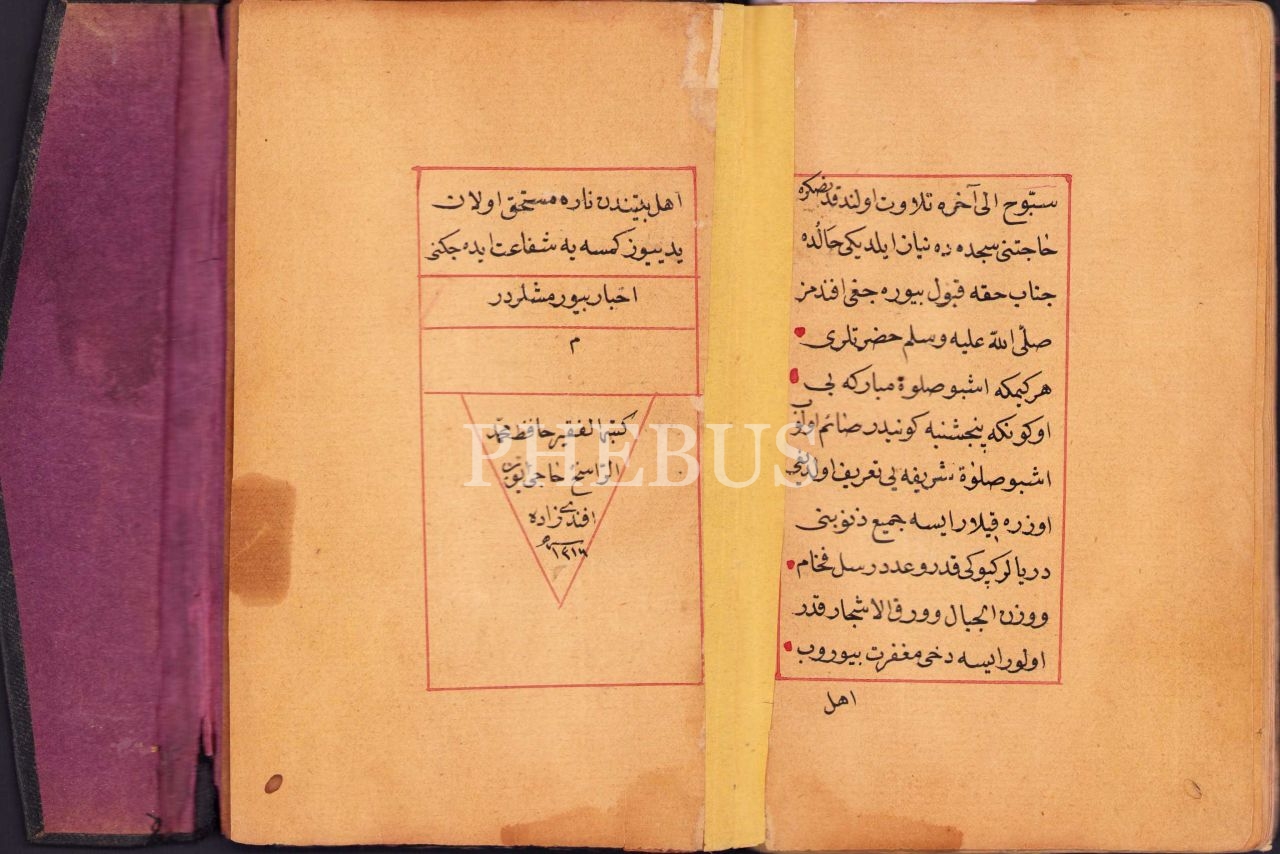 سبّوح الى آخره تلاوت اولندقدنصكره
حاجتنى سجده ده نياز ايلديكى حالده
جناب حقه قبول بيوره جغى افندمز
صلّى الله عليه وسلم حضرتلرى
هر كيمكه اشبو صلوة مباركه يى
او كونكه پنجشنبه كونيدر صائم اولوب
اشبو صلوة شريفه يى تعريف اولنديغى
اوزره قيلار ايسه جميع ذنوبنى
دريالر كپوكى قدر وعدد رسل فخام
ووزن الجبال وورق الاشجار قدر
اولور ايسه دخى مغفرت بيوروب
اهل
اهل بيتندن ناره مستحق اولان
يدييوز كمسه يه شفاعت ايده جكنى
اخبار بيورمشلردر
م
كتبه الفقير حافظ محمد
الراسخ حاجى
افندى زاده
١٣١٦
PHEBUS